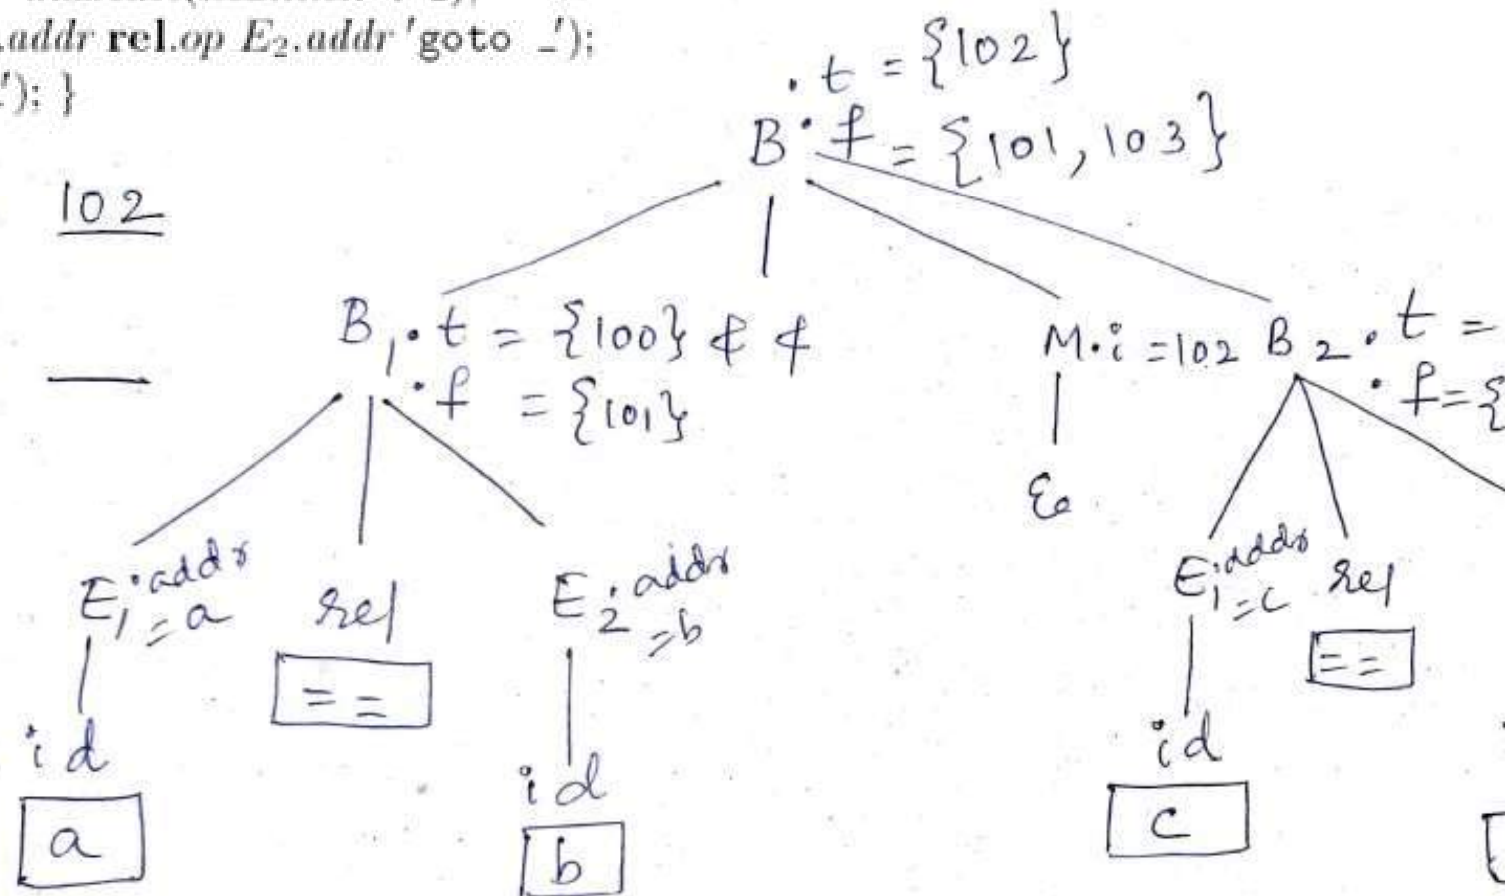 .addr rel.op E₂.addr 'goto _');
'); }
.t = {102}
B .f = {101, 103}
102
B₁.t = {100} & &
.f = {101}
M.i = 102
B₂.t =
.f = {
ε
E₁.addr = a
rel
E₂.addr = b
E₁.addr = c
rel
= =
= =
id
id
id
a
b
c